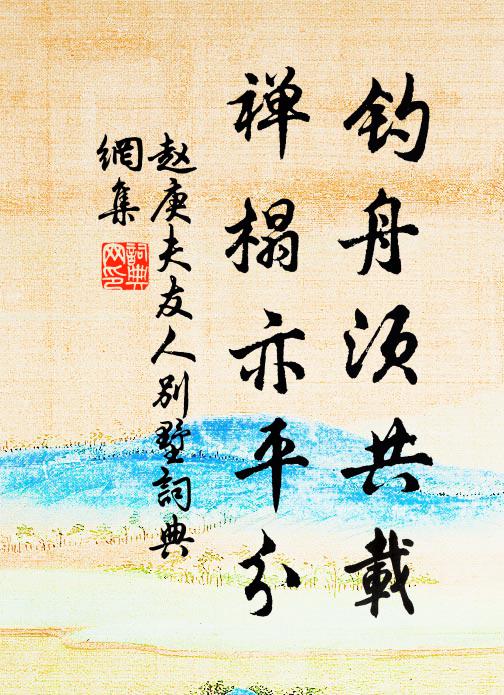 钓舟须共載
禅榻亦平分
赵庚夫友人别墅詞典
網集
詞典网印